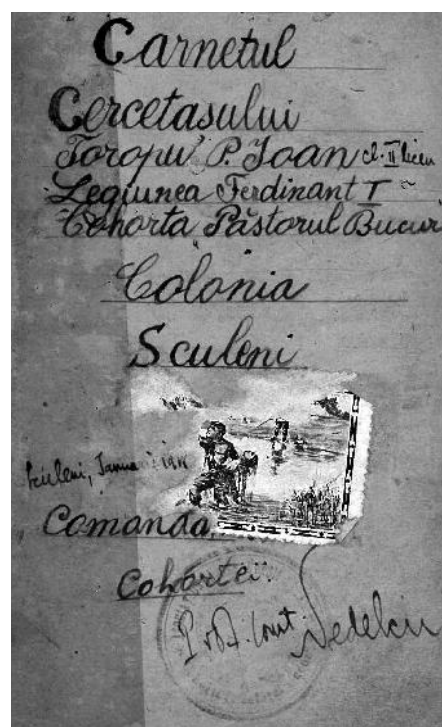 Carnetul
Cercetasului
Toropu P. Ioan cl. II liceu
Legiunea Ferdinant I
Cohorta Păstorul Bucur
Colonia
Sculeni
Sculeni,
Comanda
Cohortei
Nedelcu